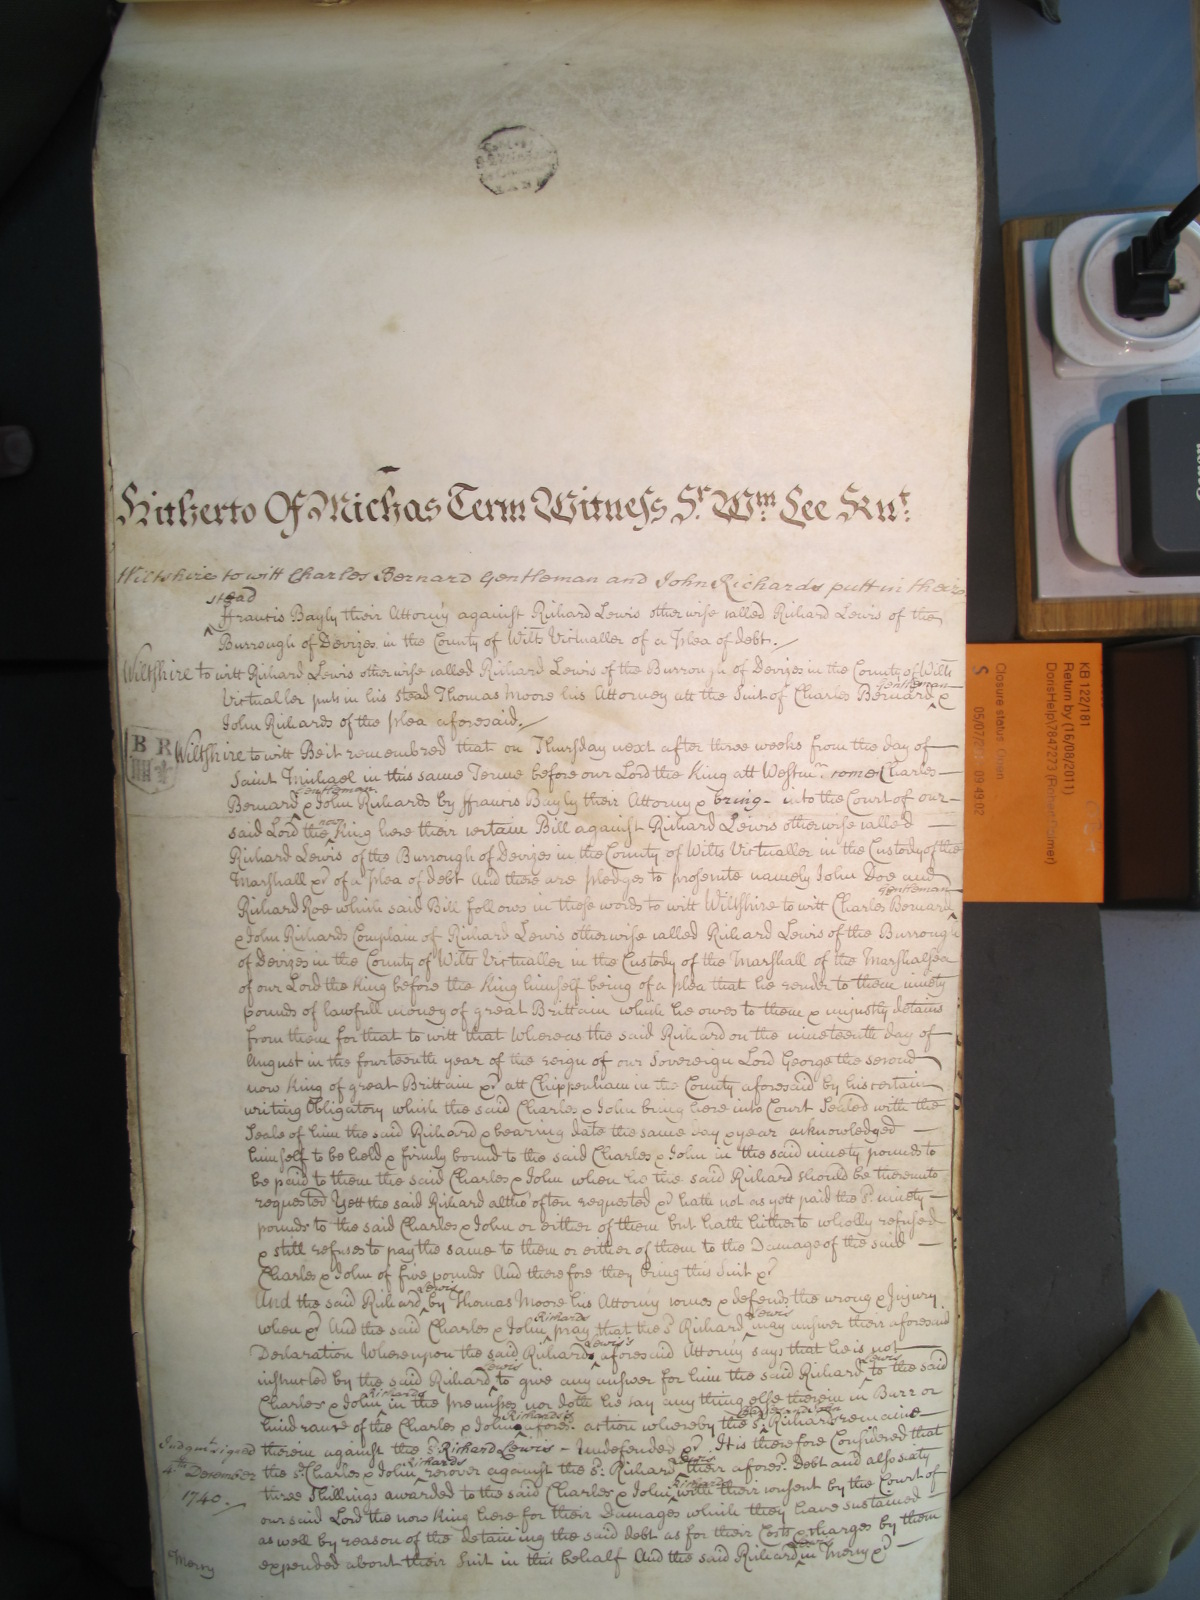 Hitherto Of Michas Term Witness Sr. Wm. Lee Knt.
Wiltshire to witt Charles Bernard Gentleman and John Richards putt in their
stead
ffrancis Bayly their Attorny against Richard Lewis otherwise called Richard Lewis of the
Burrough of Devizes in the County of Wilts Victualler of a Plea of debt.
Wiltshire to witt Richard Lewis otherwise called Richard Lewis of the Burrough of Devizes in the County of Wilts
Gentleman
Victualler puts in his stead Thomas Moore his Attorney att the Suit of Charles Bernard &
John Richards of the plea aforesaid.
BR
Wiltshire to witt Be it remembred that on Thursday next after three weeks from the day of
Saint Michael in this same Terme before our Lord the King att Westmr. come Charles
Gentleman
Bernard & John Richards by ffrancis Bayly their Attorny & bring into the Court of our
now
said Lord the King here their certain Bill against Richard Lewis otherwise called
Richard Lewis of the Burrough of Devizes in the County of Wilts Victualler in the Custody of the
Marshall &c of a plea of debt And there are pledges to prosecute namely John Doe and
Gentleman
Richard Roe which said Bill follows in these words to witt Wiltshire to witt Charles Bernard
& John Richards Complain of Richard Lewis otherwise called Richard Lewis of the Burrough
of Devizes in the County of Wilts Victualler in the Custody of the Marshall of the Marshalsea
of our Lord the King before the King himself being of a plea that he render to them ninety
pounds of lawfull money of great Brittain which he owes to them & unjustly detains
from them for that to witt that Whereas the said Richard on the nineteenth day of
August in the fourteenth year of the reign of our Sovereign Lord George the second
now King of great Brittain &c att Chippenham in the County aforesaid by his certain
writing Obligatory which the said Charles & John bring here into Court Sealed with the
Seale of him the said Richard & bearing date the same day & year acknowledged
himself to be held & firmly bound to the said Charles & John in the said ninety pounds to
be paid to them the said Charles & John when he the said Richard should be thereunto
requested Yett the said Richard altho' often requested &c hath not as yett paid the sd. ninety
pounds to the said Charles & John or either of them but hath hitherto wholly refused
& still refuses to pay the same to them or either of them to the Damage of the said
Charles & John of five pounds And therefore they bring this Suit &c
Lewis
And the said Richard by Thomas Moore his Attorny comes & defends the wrong & Injury
Richards Lewis
when &c And the said Charles & John pray that the sd. Richard may answer their aforesaid
Lewis's
Declaration Whereupon the said Richards aforesaid Attorny says that he is not
Lewis Lewis
instructed by the said Richard to give any answer for him the said Richard to the said
Richards
Charles & John in the premisses nor doth he say any thing else therein in Barr or
Richards's
hindrance of the Charles & John afores. action whereby the sd. Richard remains
therein against the sd. Richard Lewis Undefended &c. It is therefore Considered that
Judgmt. signed
4th December
1740.
Richards Lewis
the sd. Charles & John recover against the sd. Richard their afores. Debt and also sixty
Richards
three Shillings awarded to the said Charles & John with their consent by the Court of
our said Lord the now King here for their Damages which they have sustained
as well by reason of the detaining the said debt as for their Costs & charges by them
Lewis
expended about their Suit in this behalf And the said Richard in Mercy &c
Mercy
KB 122/181
Return by (16/08/2011)
Closure status: Open
S 09:49:02